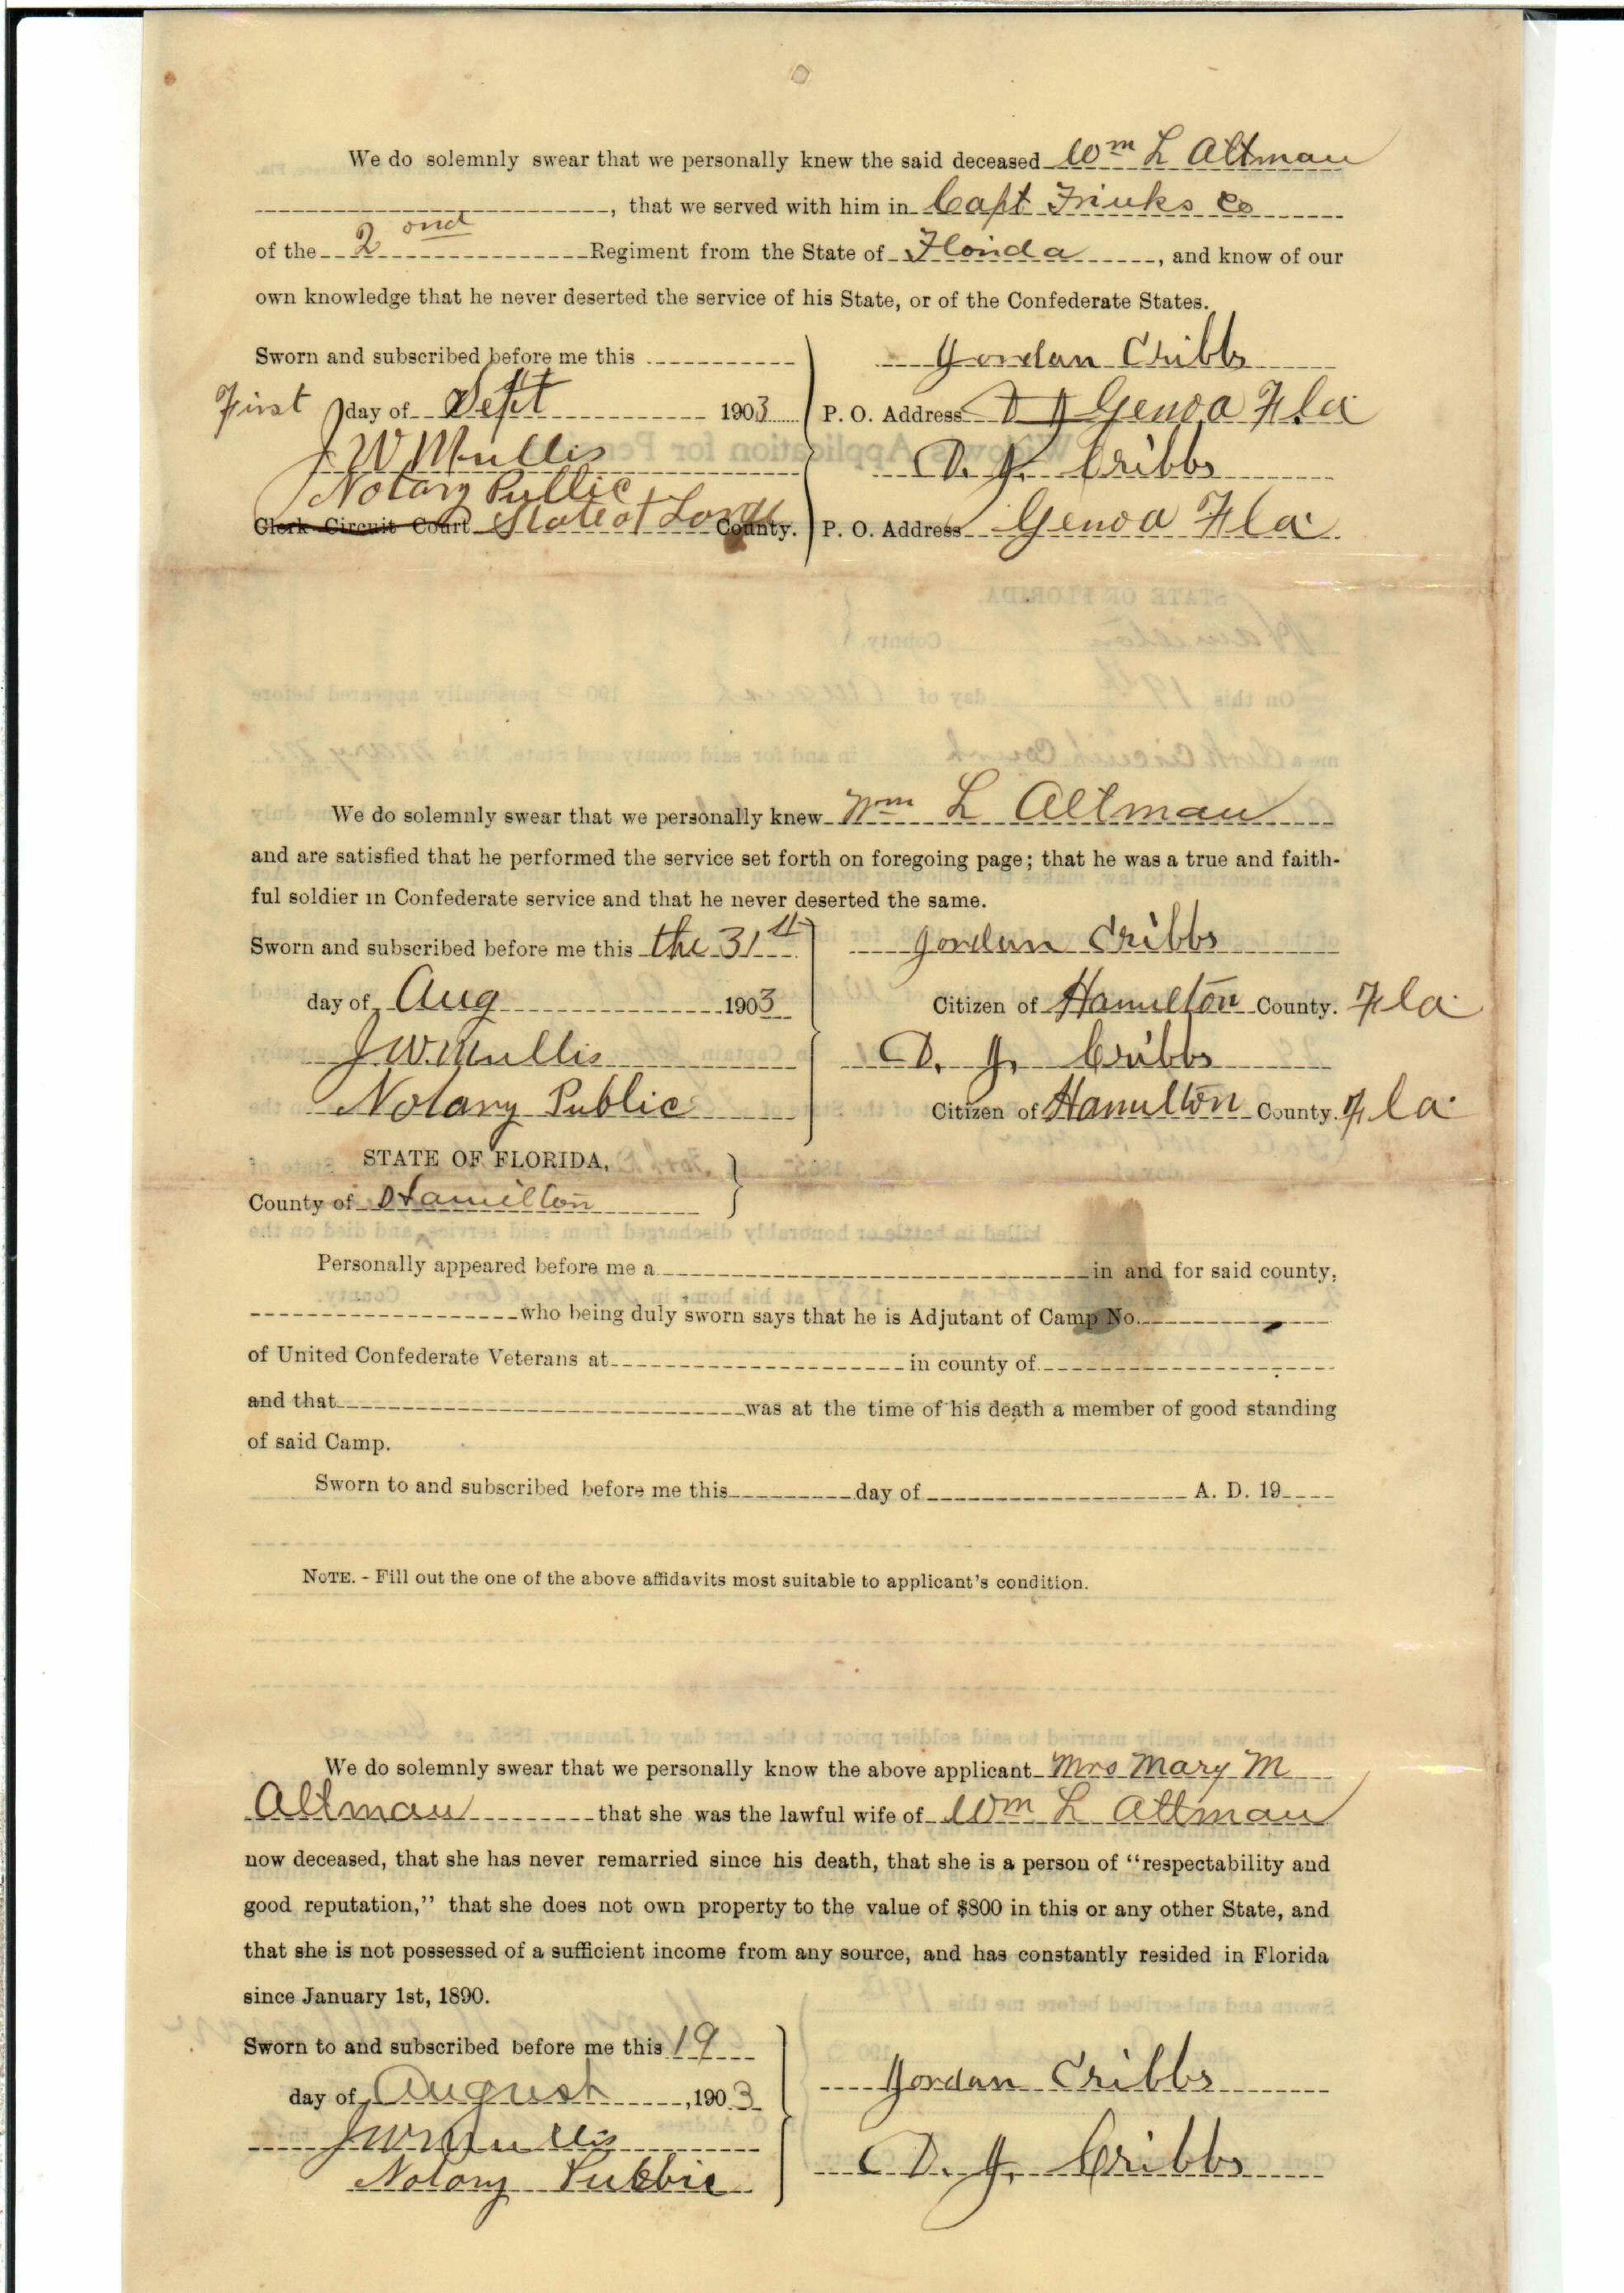 We do solemnly swear that we personally knew the said deceased Wm L Altman
, that we served with him in Capt Frinks Co
of the 2ond Regiment from the State of Florida, and know of our
own knowledge that he never deserted the service of his State, or of the Confederate States.
Sworn and subscribed before me this
First day of Sept 1903
J W Mullis
Notary Public
Clerk Circuit Court State at Large County.
Jordan Cribbs
P. O. Address Genoa Fla
D. J. Cribbs
P. O. Address Genoa Fla
We do solemnly swear that we personally knew Wm L Altman
and are satisfied that he performed the service set forth on foregoing page; that he was a true and faith-
ful soldier in Confederate service and that he never deserted the same.
Sworn and subscribed before me this the 31st
day of Aug 1903
J. W. Mullis
Notary Public
Jordan Cribbs
Citizen of Hamilton County. Fla
D. J. Cribbs
Citizen of Hamilton County. Fla
STATE OF FLORIDA,
County of Hamilton
Personally appeared before me a in and for said county,
who being duly sworn says that he is Adjutant of Camp No.
of United Confederate Veterans at in county of
and that was at the time of his death a member of good standing
of said Camp.
Sworn to and subscribed before me this day of A. D. 19
NOTE. - Fill out the one of the above affidavits most suitable to applicant's condition.
We do solemnly swear that we personally know the above applicant Mrs Mary M
Altman that she was the lawful wife of Wm L Altman
now deceased, that she has never remarried since his death, that she is a person of "respectability and
good reputation," that she does not own property to the value of $800 in this or any other State, and
that she is not possessed of a sufficient income from any source, and has constantly resided in Florida
since January 1st, 1890.
Sworn to and subscribed before me this 19
day of August, 1903
J W Mullis
Notary Public
Jordan Cribbs
D. J. Cribbs